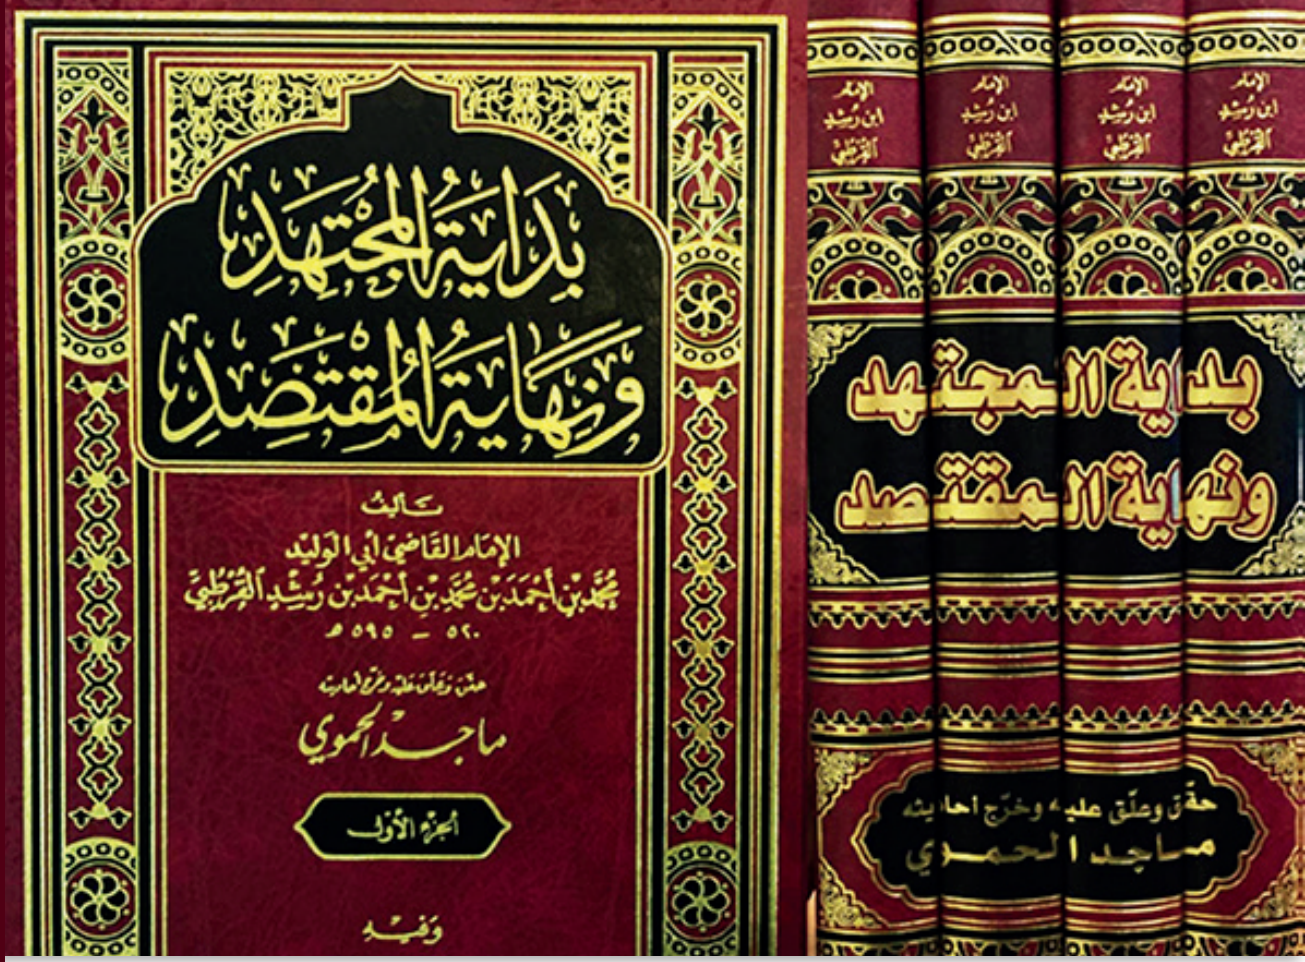 بِدَايَةُ المُجْتَهِدِ
وَنِهَايَةُ المُقْتَصِدِ
تأليف
الإمام القاضي أبي الوليد
محمّد بن أحمد بن محمّد بن أحمد بن رُشْدٍ القُرْطُبيّ
٥٢٠ - ٥٩٥ هـ
حقّق وعلّق عليه وخرّج أحاديثه
ماجد الحموي
الجزء الأوّل
وفيه
الإمام
ابن رُشْد
القُرْطُبيّ
الإمام
ابن رُشْد
القُرْطُبيّ
الإمام
ابن رُشْد
القُرْطُبيّ
الإمام
ابن رُشْد
القُرْطُبيّ
بداية المجتهد
ونهاية المقتصد
حقّق وعلّق عليه وخرّج أحاديثه
ماجد الحموي